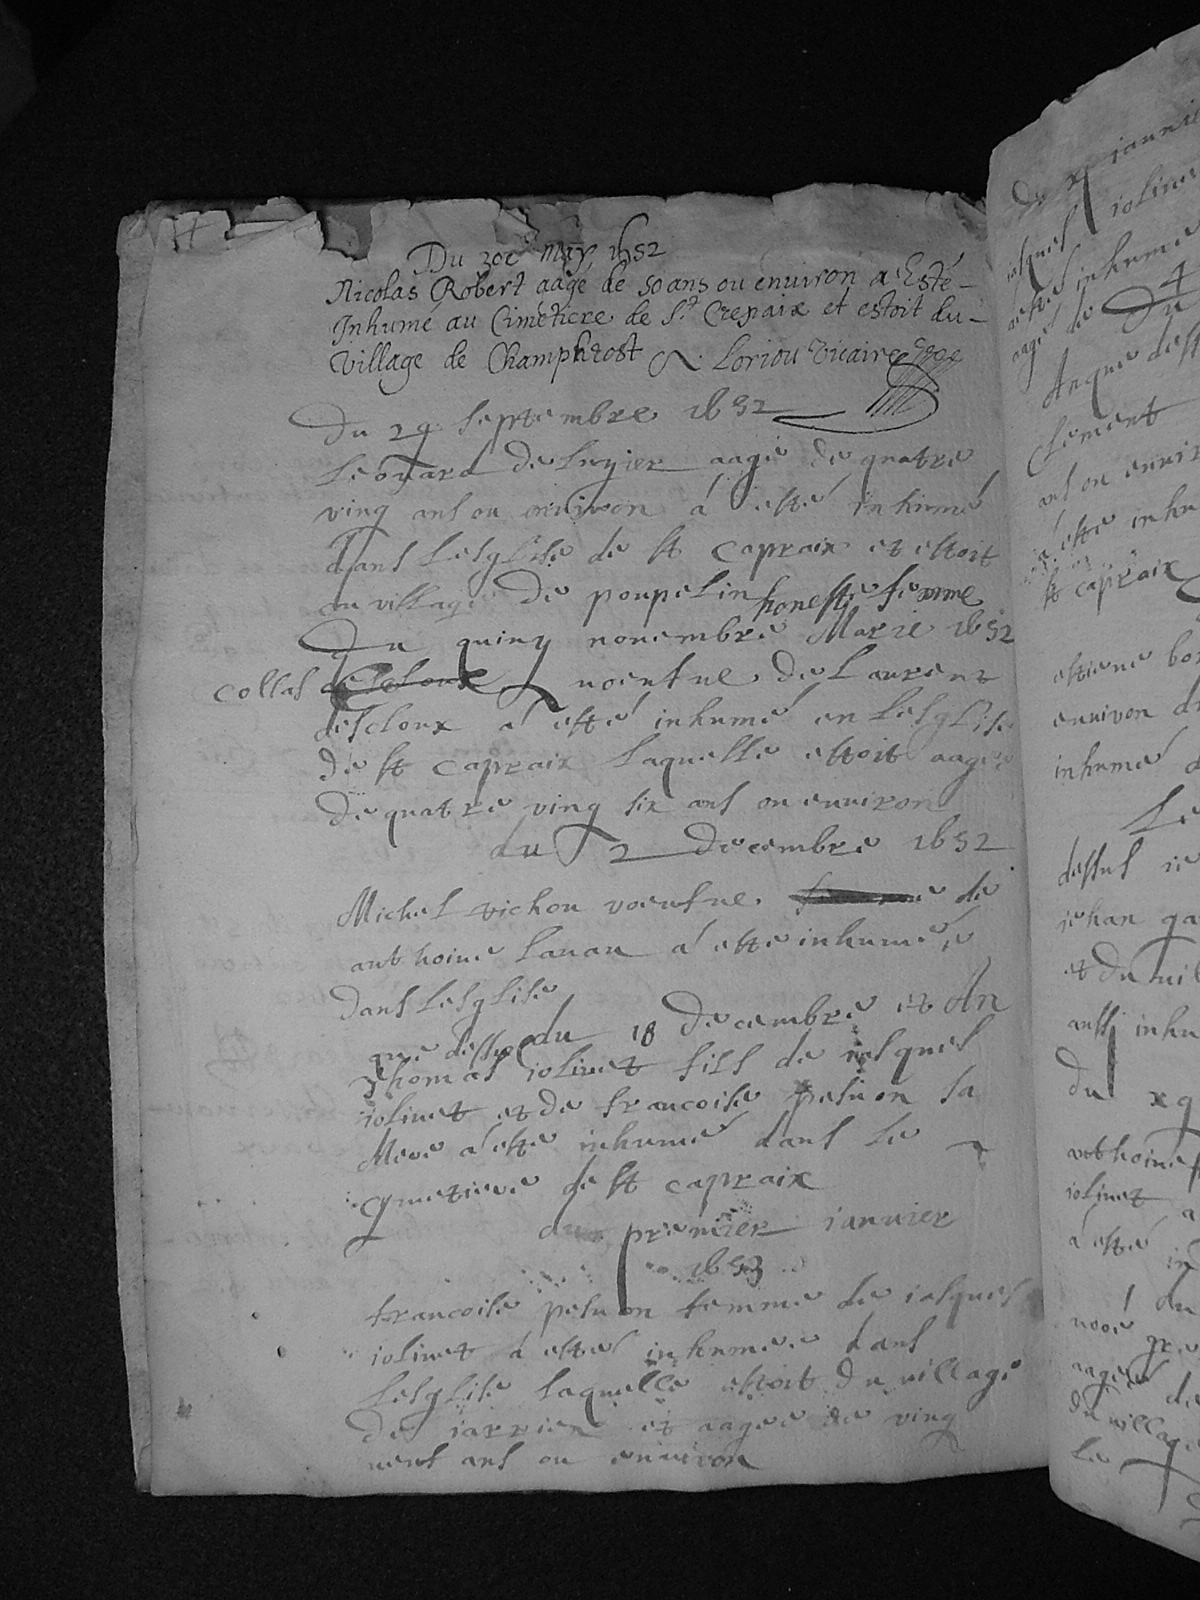 Du 30e may 1652
Nicolas Robert aagé de 50 ans ou environ a Esté
Inhumé au Cimeticre de St. Crepaix et estoit du
Village de Champhrost Loriou Vicaire
Du 29 septembre 1652
Leonard de aagé de quatre
ving ans ou environ á esté inhumé
dans lesglise de st capraix et estoit
du village de poupelin honeste femme
Du quinz nouembre Marie 1652
collas descloux voeufue de Laurent
descloux a esté inhumé en lesglise
de st capraix laquelle estoit aagee
de quatre ving six ans ou enuiron
du 2 decembre 1652
Michel vichon voeufue femme de
anthoine lauau a esté inhumée
dans lesglise
du 18 decembre et An
que dessus
Thomas iolinet fils de iasques
iolinet et de francoise pesuon sa
Mere a esté inhumé dans le
cymetiere de st capraix
du premier ianuier
1653
francoise pesuon femme de iasques
iolinet á esté inhumee dans
lesglise laquelle estoit du village
de iarrien et aagee de ving
neuf ans ou enuiron
Du ianuie
iasques
inhumé
aagé de
Du 4
An que dess
Clement
ans ou enuir
á esté inhu
st capraix
estiene
enuiron du
inhumé
Le
dessus
iehan
et du uil
aussi inhu
Du
anthoine
iolinet
a esté
du
aagee de
du village